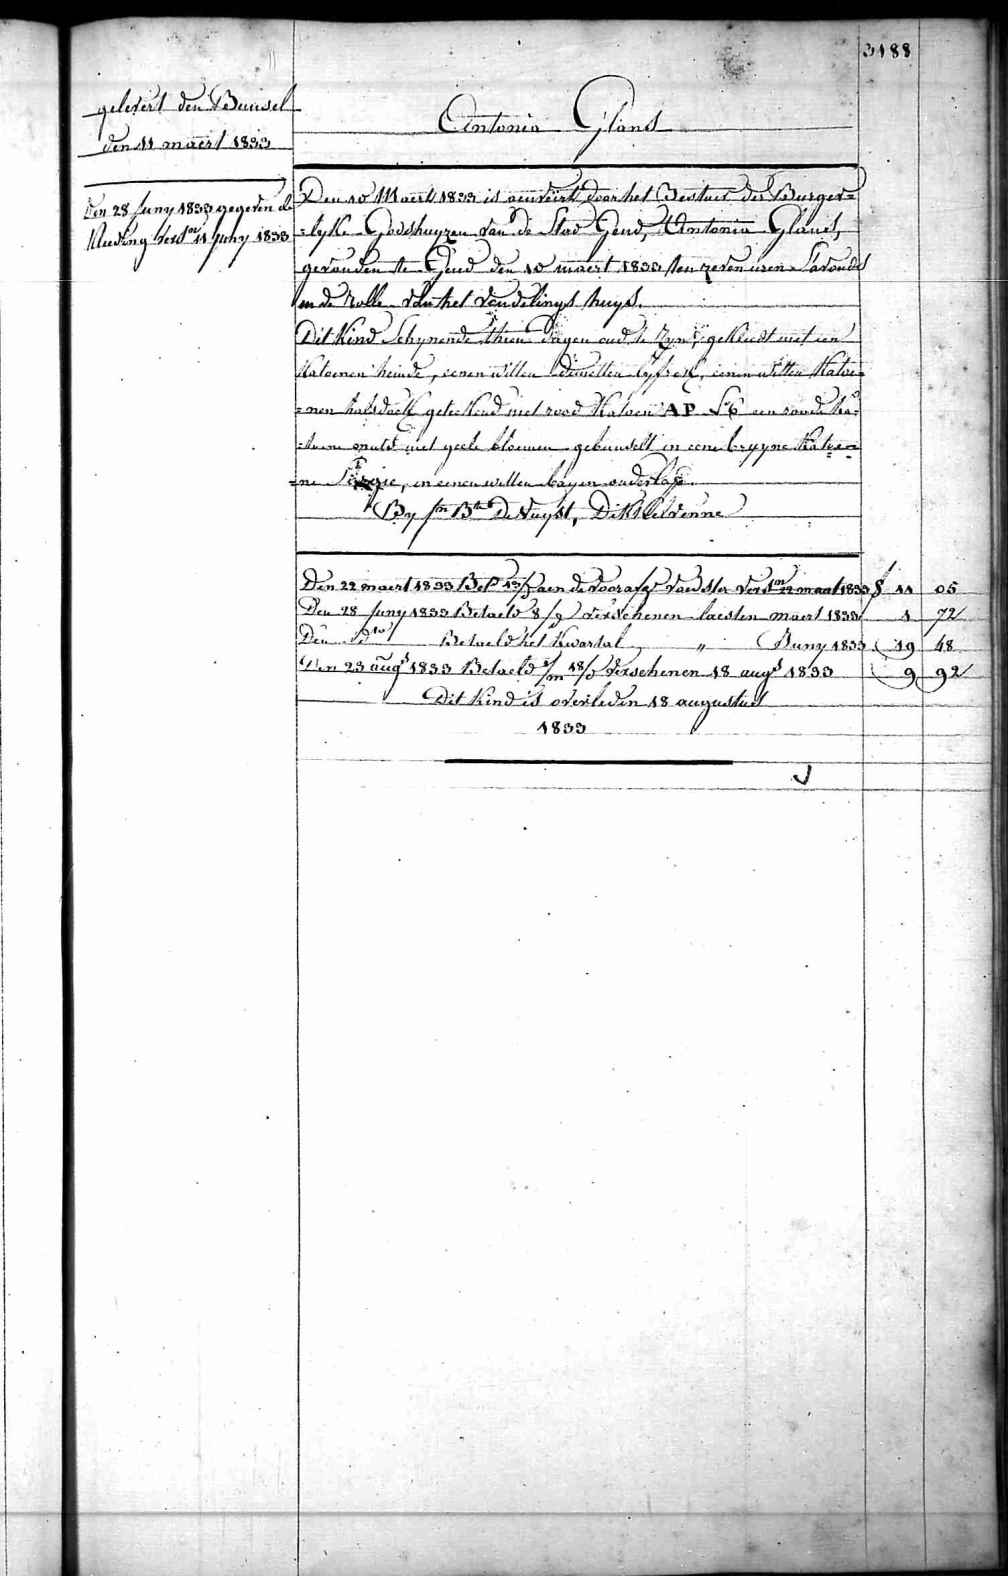 3188
gelevert den Bunsel
den 11 maert 1833
Antonia Glans
Den 28 Juny 1833 gegeven de
Kleeding versn 11 Juny 1833
Den 10 Maert 1833 is aenveird door het Bestuer der Burger=
=lyke Godshuyzen van de Stad Gend, Antonia Glans,
gevonden te Gend den 10 maert 1833 ten zeven uren S'avonds
in de rolle van het vondelings huys.
Dit Kind Schynende thien dagen oud te Zyn, gekleedt met een
Katoenen hemde, eenen witten lyfrok, eenen witten Katoe=
=nen halsdoek geteekend met rood Katoen AP N. 6 een roode ka=
=toene muts met geele bloemen gebunselt in eene bruyne Katoe=
=ne Sergie, en eenen wollen bayen onderlap.
By Jn Bte De Vuyst, Dikkelvenne
Den 22 maert 1833 Bet. 13/ aen de voorafge voedster versn 22 maert 1833 f 11 05
Den 28 Juny 1833 Betaeld 8/9 verschenen laesten maert 1833 1 72
Den dto Betaeld het Kwartal " Juny 1833 19 48
Den 23 augt 1833 Betaeld 1/m 18/d verschenen 18 augt 1833 9 92
Dit Kind is overleden 18 augustus
1833